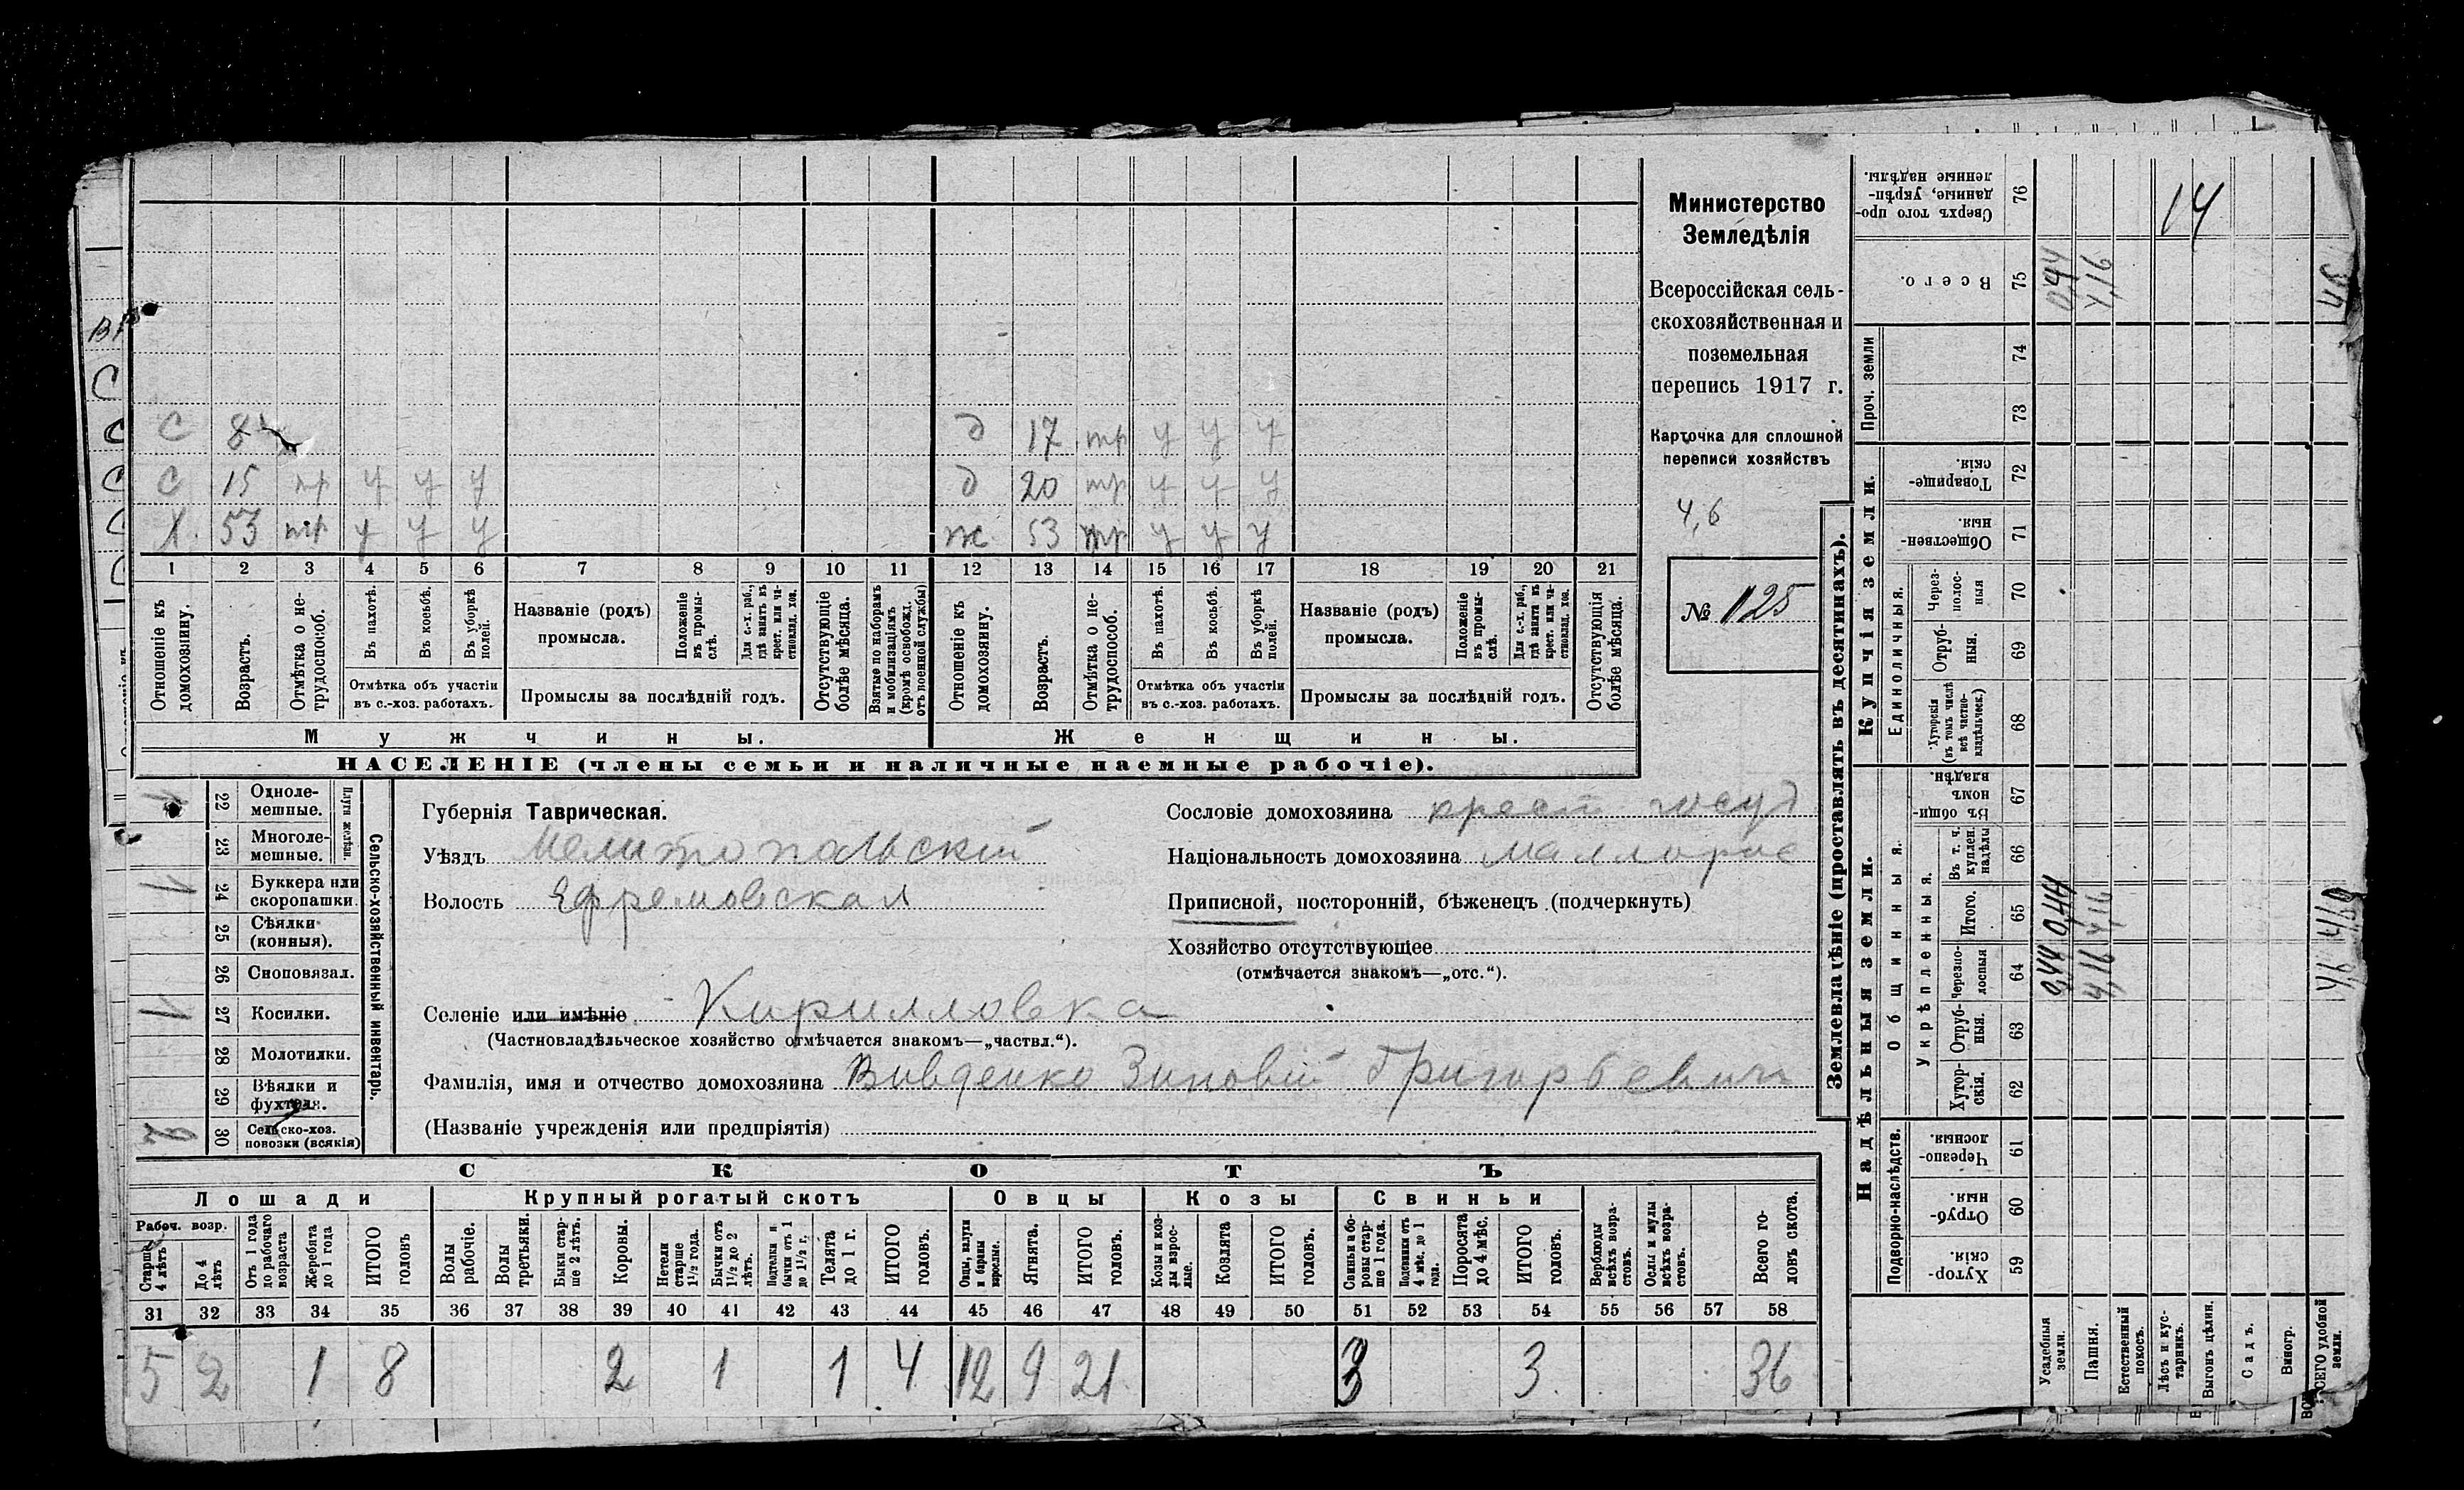 Министерство
Земледѣлія
Всероссійская сель-
скохозяйственная и
поземельная
перепись 1917 г.
Карточка для сплошной
переписи хозяйствъ
4,6
№ 125
С 8
С 15 нр у у у
Х. 53 тр у у у
д 17 тр у у у
д 20 тр у у у
ж 53 тр у у у
1 2 3 4 5 6 7 8 9 10 11 12 13 14 15 16 17 18 19 20 21
Отношеніе къ домохозяину.
Возрастъ.
Отмѣтка о не-трудоспособ.
Въ пахотѣ.
Въ косьбѣ.
Въ уборкѣ полей.
Отмѣтка объ участіи
въ с.-хоз. работахъ.
Названіе (родъ)
промысла.
Положеніе въ промы-слѣ.
Для с.-х. раб., гдѣ занятъ въ крест. или ча-стновлад. хоз.
Промыслы за послѣдній годъ.
Отсутствующіе болѣе мѣсяца.
Взятые по наборамъ и мобилизаціямъ (кромѣ освобожд. отъ военной службы)
Отношеніе къ домохозяину.
Возрастъ.
Отмѣтка о не-трудоспособ.
Въ пахотѣ.
Въ косьбѣ.
Въ уборкѣ полей.
Отмѣтка объ участіи
въ с.-хоз. работахъ.
Названіе (родъ)
промысла.
Положеніе въ промы-слѣ.
Для с.-х. раб., гдѣ занята въ крест. или ча-стновлад. хоз.
Промыслы за послѣдній годъ.
Отсутствующія болѣе мѣсяца.
Мужчины. Женщины.
НАСЕЛЕНІЕ (члены семьи и наличные наемные рабочіе).
Сельско-хозяйственный инвентарь.
Плуги желѣзн.
1 22 Однолемешные.
23 Многолемешные.
1 24 Буккера или скоропашки.
25 Сѣялки (конныя).
26 Сноповязал.
1 27 Косилки.
28 Молотилки.
29 Вѣялки и фухтеля.
2 30 Сельско-хоз. повозки (всякія)
Губернія Таврическая.
Уѣздъ Мелитопольскій
Волость Ефремовская
Сословіе домохозяина крест госуд
Національность домохозяина Маллорос
Приписной, посторонній, бѣженецъ (подчеркнуть)
Хозяйство отсутствующее
(отмѣчается знакомъ—„отс.“).
Селеніе или имѣніе Кирилловка
(Частновладѣльческое хозяйство отмѣчается знакомъ—„частвл.“).
Фамилія, имя и отчество домохозяина Вивденко Зиновій Григорьевич
(Названіе учрежденія или предпріятія)
СКОТЪ
Лошади Крупный рогатый скотъ Овцы Козы Свиньи
Рабоч. возр.
Старше 4 лѣтъ
До 4 лѣтъ
Отъ 1 года до рабочаго возраста
Жеребята до 1 года
ИТОГО головъ
Волы рабочіе.
Волы третьяки.
Быки стар-ше 2 лѣтъ.
Коровы.
Нетели старше 1½ года.
Бычки отъ 1½ до 2 лѣтъ.
Подтелки и бычки отъ 1 до 1½ г.
Телята до 1 г.
ИТОГО головъ.
Овцы, валухи и бараны взрослые.
Ягнята.
ИТОГО головъ.
Козы и коз-лы взрос-лые.
Козлята
ИТОГО головъ.
Свиньи и бо-ровы стар-ше 1 года.
Подсвинки отъ 4 мѣс. до 1 года.
Поросята до 4 мѣс.
ИТОГО головъ.
Верблюды всѣхъ возра-стовъ.
Ослы и мулы всѣхъ возра-стовъ.
Всего го-ловъ скота.
31 32 33 34 35 36 37 38 39 40 41 42 43 44 45 46 47 48 49 50 51 52 53 54 55 56 57 58
5 2 1 8 2 1 1 4 12 9 21 3 3 36
Землевладѣніе (проставлять въ десятинахъ).
Надѣльныя земли. Купчія земли. Проч. земли
Подворно-наслѣдств.
Общинныя.
Укрѣпленныя.
Единоличныя.
59 Хутор-скія.
60 Отруб-ныя.
61 Черезпо-лосныя.
62 Хутор-скія.
63 Отруб-ныя.
64 Черезпо-лосныя 0,44 4,16
65 Итого. 0,44 4,16
66 Въ т. ч. куплен. надѣлы
67 Въ общи-номъ владѣн.
68 Хуторскія (въ томъ числѣ всѣ частно-владѣльческ.)
69 Отруб-ныя.
70 Через-полос-ныя
71 Обществен-ныя.
72 Товарище-скія.
73
74
75 Всего. 0,44 4,16
76 Сверхъ того про-данные, укрѣп-ленные надѣлы.
14
Усадебныя земли.
Пашня.
Естественный покосъ.
Лѣсъ и кус-тарникъ.
Выгонъ цѣлин.
Садъ.
Виногр.
ВСЕГО удобной земли.